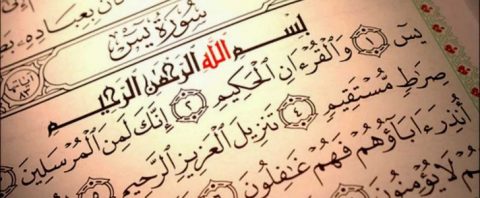 بعباده
سورة يس
بسم الله الرحمن الرحيم
يسٓ ١ وَٱلۡقُرۡءَانِ ٱلۡحَكِيمِ ٢ إِنَّكَ لَمِنَ ٱلۡمُرۡسَلِينَ
صِرَٰطٖ مُّسۡتَقِيمٖ ٤ تَنزِيلَ ٱلۡعَزِيزِ ٱلرَّحِيمِ
أُنذِرَ ءَابَآؤُهُمۡ فَهُمۡ غَٰفِلُونَ
لَا يُؤۡمِنُونَ